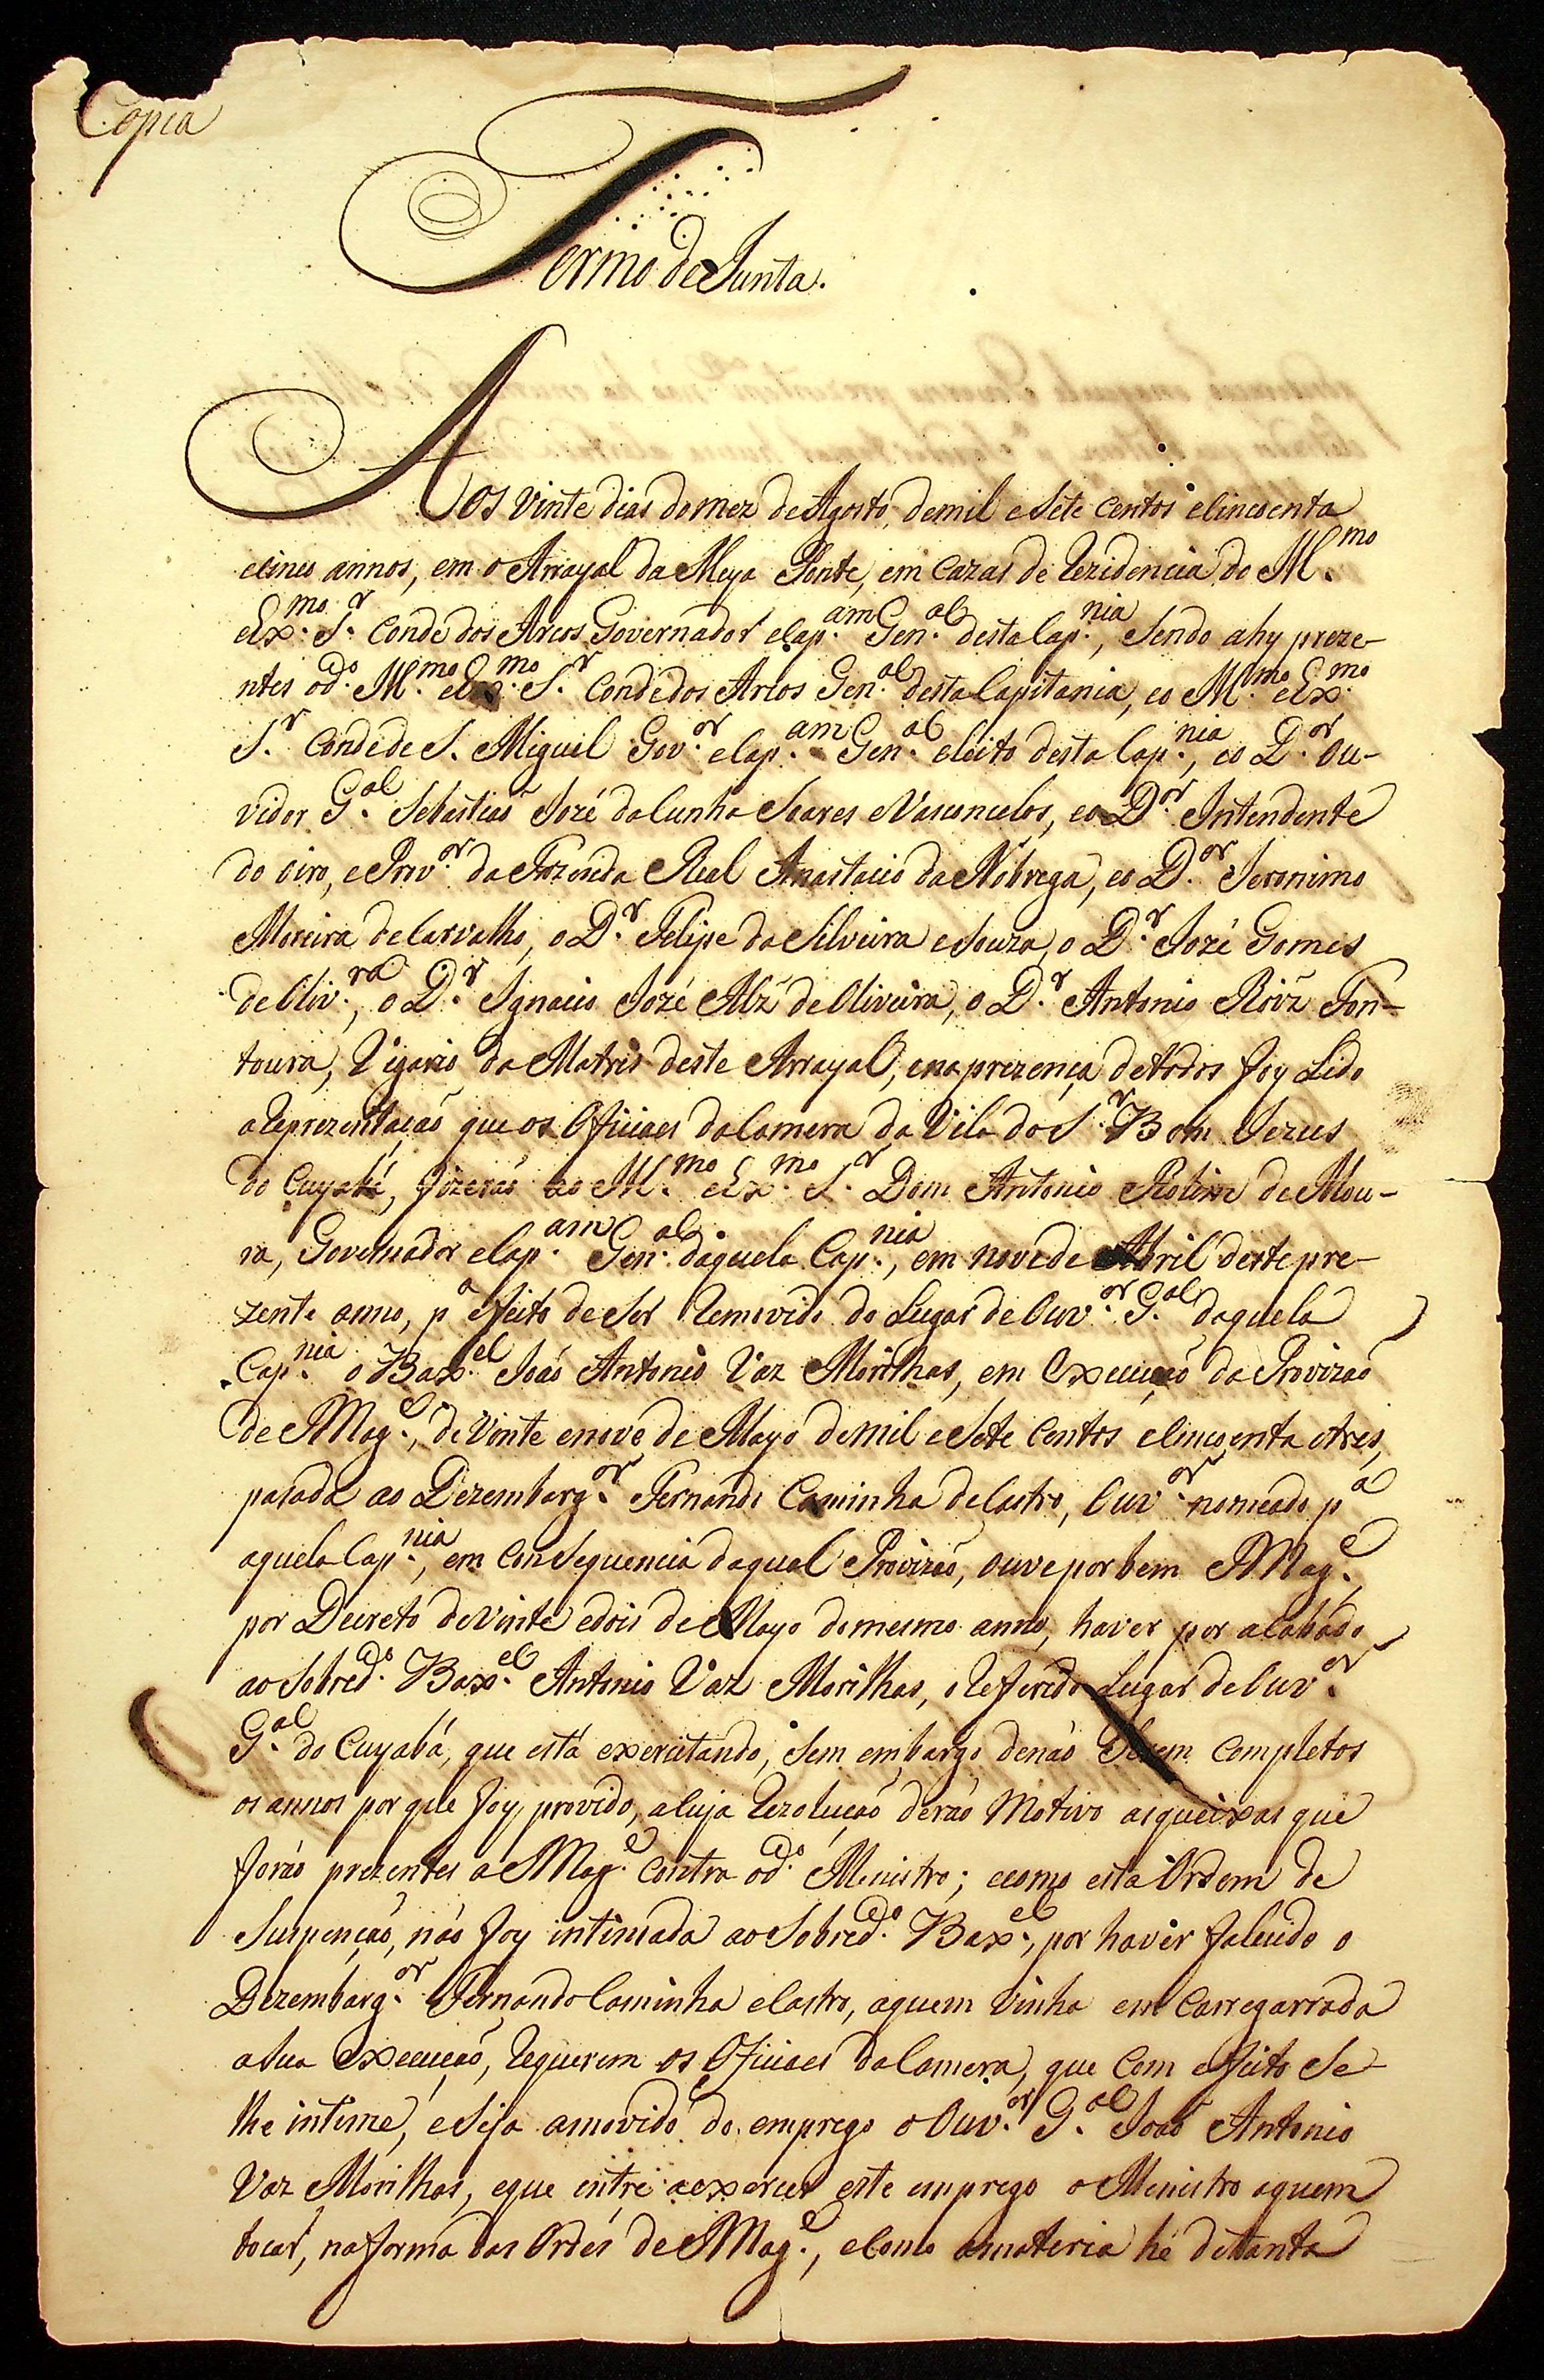 Copea
Termo de Junta.
Aos vinte dias do mez de Agosto, de mil e Sete Centos e Sincoenta
e Sinco annos, em o Arrayal da Meya Ponte, em Cazas de Rezidencia do Ill.mo
e Ex.mo S.r Conde dos Arcos Governador e Cap.am Gen.al desta Cap.nia, Sendo ahy preze-
ntes o d.o Ill.mo e Ex.mo S.r Conde dos Arcos Gen.al desta Capitania, e o Ill.mo e Ex.mo
S.r Conde de S. Miguel Gov.or e Cap.am Gen.al eleito desta Cap.nia, e o D.or Ou-
vidor G.al Sebastiaõ Jozé da Cunha Soares e Vasconcelos, e o D.or Intendente
do oiro, e Prov.or da Fazenda Real Anastacio da Nobrega, e o D.or Jeronimo
Moreira de Carvalho, o D.r Felipe da Silveira e Souza, o D.r Jozé Gomes
de Oliv.ra, o D.r Ignacio Jozé Alz̃ de Oliveira, o D.r Antonio Roiz̃ Fon-
toura, Vigario da Matris deste Arrayal, e na prezença de todos foy Lido
a Reprezentaçaõ que os Oficiaes da Camera da Vila do S.r Bom Jezus
do Cuyabá, fizeraõ ao Ill.mo e Ex.mo S.r Dom Antonio Rolim de Mou-
ra, Governador e Cap.am Gen.al daquela Cap.nia, em nove de Abril deste pre-
zente anno, p.a efeito de Ser Removido do Lugar de Ouv.or G.al daquela
Cap.nia o Bax.el Joaõ Antonio Vaz Morilhas, em Execuçaõ da Provizaõ
de S Mag.e, de Vinte e nove de Mayo de mil e Sete Centos e Sincoenta e tres,
pasada ao Dezembarg.or Fernando Caminha de Castro, Ouv.or nomeado p.a
aquela Cap.nia, em ConSequencia da qual Provizaõ, ouve por bem S Mag.e,
por Decreto de vinte e dois de Mayo do mesmo anno, haver por acabado
ao Sobred.o Bax.el Antonio Vaz Morilhas, o Referido Lugar de Ouv.or
G.al do Cuyabá, que está exercitando, Sem embargo de naõ Serem Completos
os annos por que foy provido, a Cuja Rezoluçaõ deraõ Motivo as queixas que
foraõ prezentes a S Mag.e Contra o d.o Ministro; e como esta Ordem de
Suspençaõ, naõ foy intimada ao Sobred.o Bax.el, por haver falecido o
Dezembarg.or Fernando Caminha e Castro, a quem Vinha em Carregarrada
a Sua execuçaõ, Requerem os Oficiaes da Camera, que Com efeito Se
lhe intime, e Seja amovido do emprego o Ouv.or G.al Joaõ Antonio
Vaz Morilhas, e que entre a exercer este emprego o Ministro a quem
tocar, na forma das Ordés de S Mag.e, e Como a materia hé de tanta